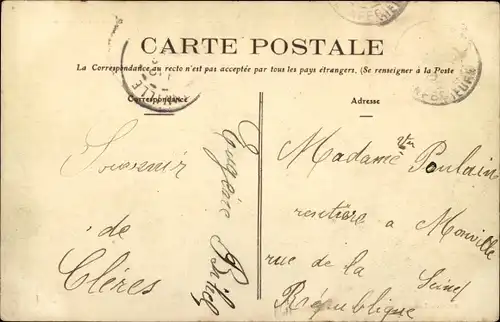 CARTE POSTALE
La Correspondance au recto n'est pas acceptée par tous les pays étrangers. (Se renseigner à la Poste
Correspondance
Adresse
Souvenir
de
Clères
Eugénie
Madame Vve Poulain
a Monville
rue de la
République
Seine